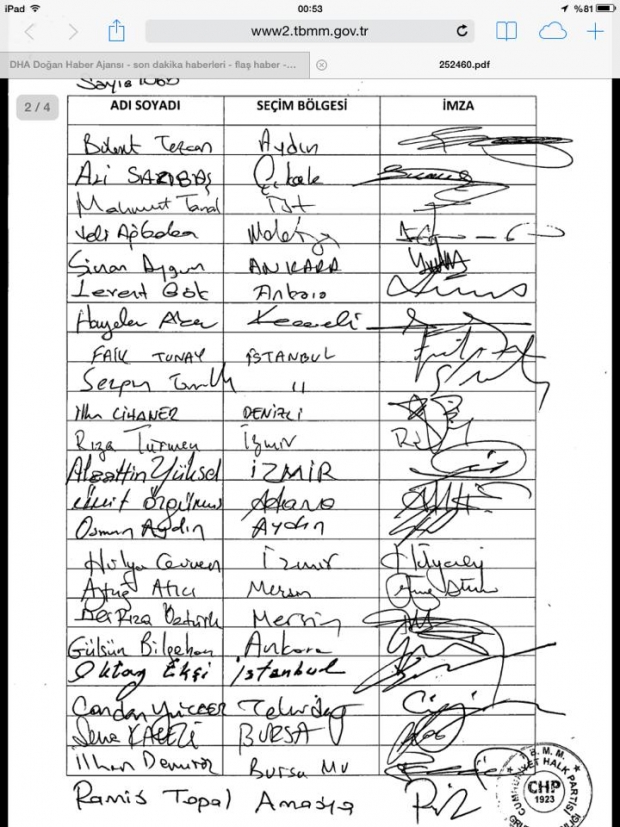 iPad 00:53 %81
www2.tbmm.gov.tr
DHA Doğan Haber Ajansı - son dakika haberleri - flaş haber -... 252460.pdf
2 / 4
ADI SOYADI SEÇİM BÖLGESİ İMZA
Bülent Tezcan Aydın
Mahmut Tanal İst
Veli Ağbaba Malatya
Sinan Aygün ANKARA
Levent Gök Ankara
Haydar Akar Kocaeli
FAİK TUNAY İSTANBUL
"
İlhan CİHANER DENİZLİ
Rıza Türmen İzmir
Alaattin Yüksel İZMİR
Ümit Özgümüş Adana
Osman Aydın Aydın
Hülya Güven İzmir
Aytuğ Atıcı Mersin
Ali Rıza Öztürk Mersin
Gülsün Bilgehan Ankara
Oktay Ekşi İstanbul
Candan YÜCEER Tekirdağ
Sena KALELİ BURSA
İlhan Demiröz Bursa Mv
Ramis Topal Amasya
T.B.M.M.
CUMHURİYET HALK PARTİSİ
CHP
1923